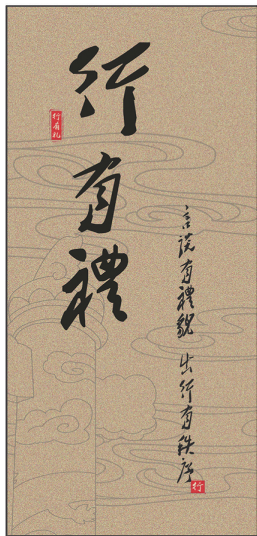 行有禮
行有礼
言談有禮貌 出行有秩序
行